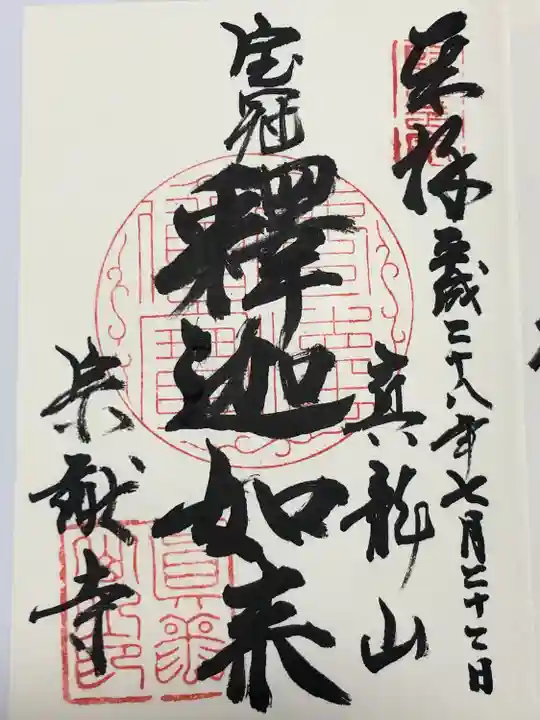 奉拝
平成二十八年七月二十七日
真龍山
宝冠
釋迦如来
栄献寺